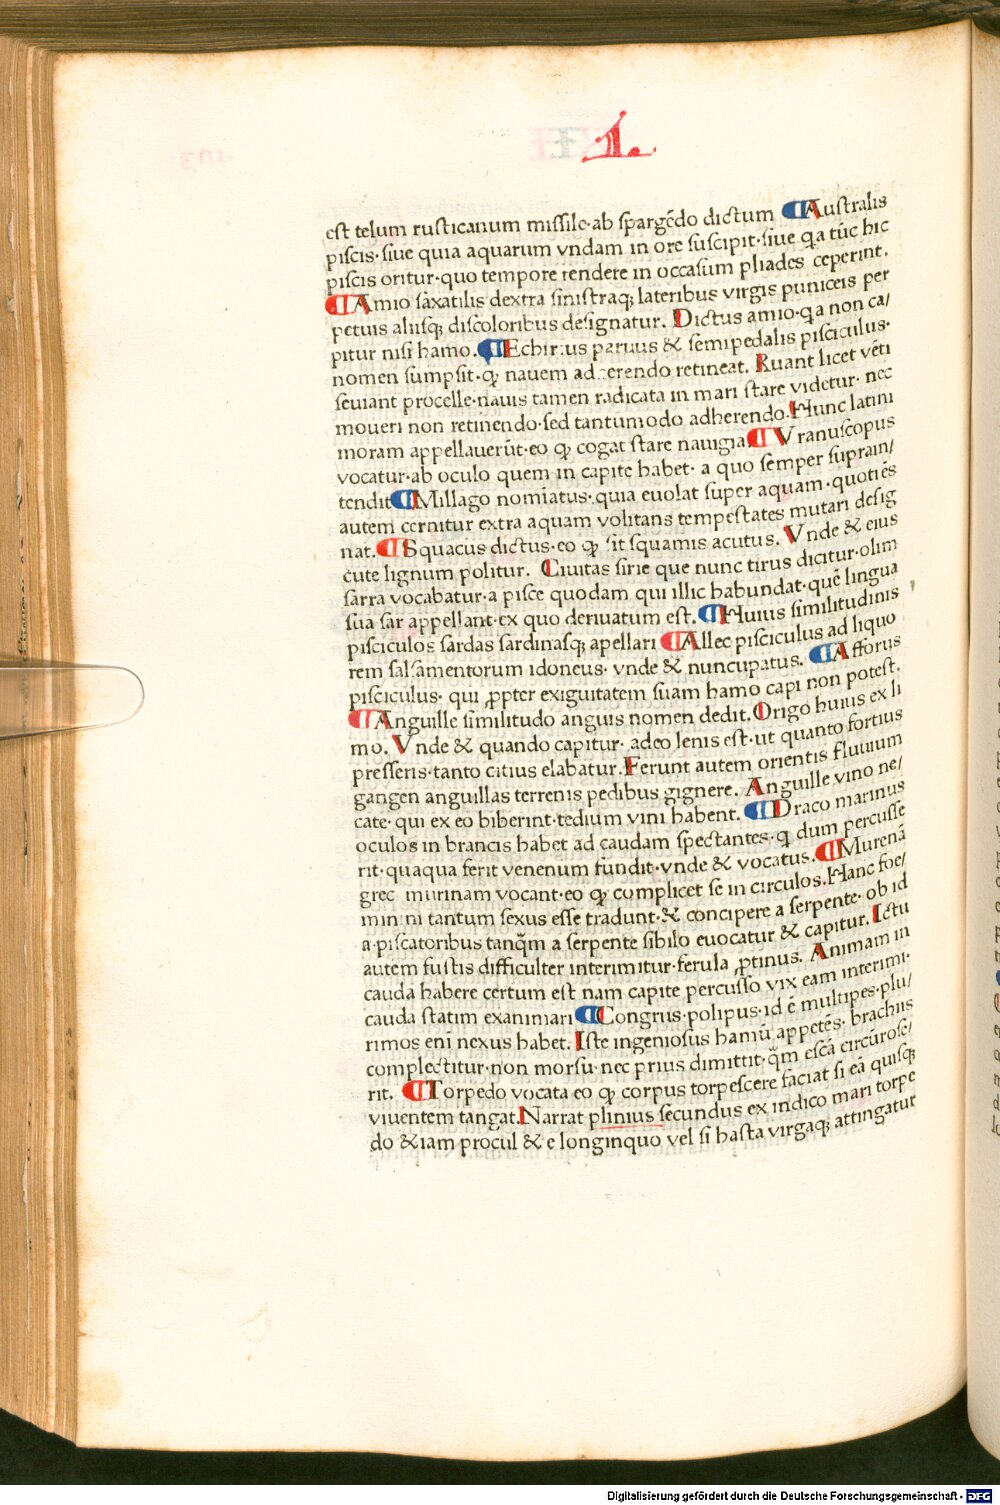 L
est telum rusticanum missile·ab spargēdo dictum ¶Australis
piscis·siue quia aquarum vndam in ore suscipit·siue q̄a tūc hic
piscis oritur·quo tempore tendere in occasum pliades ceperint.
¶Amio saxatilis dextra sinistraqꝫ lateribus virgis puniceis per
petuis aliisqꝫ discoloribus designatur. Dictus amio·q̄a non ca/
pitur nisi hamo. ¶Echinus paruus & semipedalis pisciculus·
nomen sumpsit·ꝙ nauem adherendo retineat. Ruant licet vēti
seuiant procelle·nauis tamen radicata in mari stare videtur· nec
moueri non retinendo·sed tantūmodo adherendo. Hunc latini
moram appellauerūt·eo ꝙ cogat stare nauigia ¶Vranuscopus
vocatur·ab oculo quem in capite habet· a quo semper suprain/
tendit ¶Millago nomiatus·quia euolat super aquam·quotiēs
autem cernitur extra aquam volitans tempestates mutari desig
nat. ¶Squacus dictus·eo ꝙ sit squamis acutus. Vnde & eius
cute lignum politur. Ciuitas sirie que nunc tirus dicitur·olim
sarra vocabatur·a pisce quodam qui illic habundat·quē lingua
sua sar appellant·ex quo deriuatum est. ¶Huius similitudinis
pisciculos sardas sardinasqꝫ apellari ¶Allec pisciculus ad liquo
rem salsamentorum idoneus· vnde & nuncupatus. ¶Afforus
pisciculus· qui ꝓpter exiguitatem suam hamo capi non potest.
¶Anguille similitudo anguis nomen dedit. Origo huius ex li
mo. Vnde & quando capitur· adeo lenis est·ut quanto fortius
presseris·tanto citius elabatur. Ferunt autem orientis fluuium
gangen anguillas terrenis pedibus gignere. Anguille vino ne/
cate·qui ex eo biberint·tedium vini habent. ¶Draco marinus
oculos in brancis habet ad caudam spectantes·q dum percusse
rit·quaqua ferit venenum fundit·vnde & vocatus. ¶Murenā
grec murinam vocant·eo ꝙ complicet se in circulos. Hanc foe/
minini tantum sexus esse tradunt·& concipere a serpente·ob id
a·piscatoribus tanq̄m a serpente sibilo euocatur & capitur. Ictu
autem fustis difficulter interimitur·ferula ꝓtinus. Animam in
cauda habere certum est nam capite percusso vix eam interimi·
cauda statim exanimari ¶Congrus·polipus·id ē multipes·plu/
rimos eni nexus habet. Iste ingeniosus hamū appetēs· brachiis
complectitur·non morsu·nec prius dimittit·q̄m escā circūrose/
rit. ¶Torpedo vocata eo ꝙ corpus torpescere faciat si eā quisqꝫ
viuentem tangat. Narrat plinius secundus ex indico mari torpe
do &iam procul & e longinquo vel si hasta virgaqꝫ attingatur
Digitalisierung gefördert durch die Deutsche Forschungsgemeinschaft - DFG